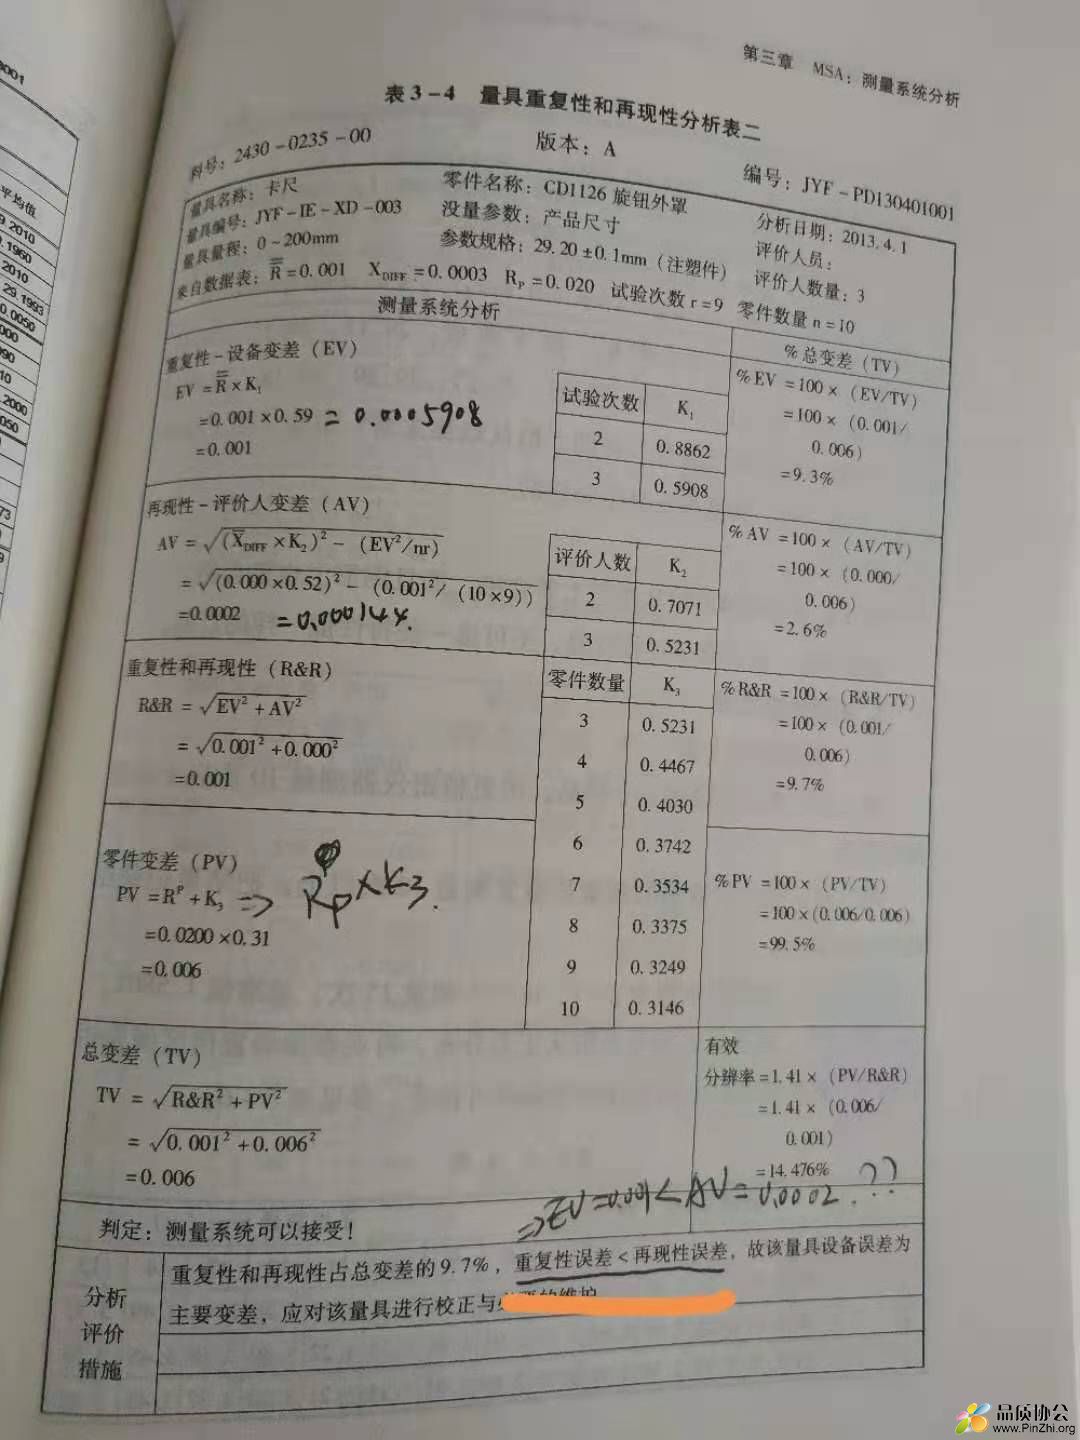 3001
平均值
9.2010
0.1960
2010
29.1993
0.0050
000
990
10
.2000
050
73
第三章 MSA：测量系统分析
表3-4 量具重复性和再现性分析表二
料号：2430-0235-00 版本：A 编号：JYF-PD130401001
量具名称：卡尺 零件名称：CD1126 旋钮外罩 分析日期：2013.4.1
量具编号：JYF-IE-XD-003 没量参数：产品尺寸 评价人员：
量具量程：0~200mm 参数规格：29.20±0.1mm（注塑件） 评价人数量：3
来自数据表：R=0.001 XDIFF=0.0003 RP=0.020 试验次数 r=9 零件数量 n=10
测量系统分析 %总变差（TV）
重复性-设备变差（EV）
EV=R×K1
=0.001×0.59 =0.0005908
=0.001
试验次数 K1
2 0.8862
3 0.5908
%EV =100×（EV/TV）
=100×（0.001/
0.006）
=9.3%
再现性-评价人变差（AV）
AV=√(XDIFF×K2)²-（EV²/nr）
=√(0.000×0.52)²-（0.001²/（10×9））
=0.0002 =0.000144.
评价人数 K2
2 0.7071
3 0.5231
%AV =100×（AV/TV）
=100×（0.000/
0.006）
=2.6%
重复性和再现性（R&R）
R&R=√EV²+AV²
=√0.001²+0.000²
=0.001
零件数量 K3
3 0.5231
4 0.4467
5 0.4030
6 0.3742
7 0.3534
8 0.3375
9 0.3249
10 0.3146
%R&R =100×（R&R/TV）
=100×（0.001/
0.006）
=9.7%
零件变差（PV）
PV=RP+K3 => Rp×K3.
=0.0200×0.31
=0.006
%PV =100×（PV/TV）
=100×(0.006/0.006)
=99.5%
总变差（TV）
TV=√R&R²+PV²
=√0.001²+0.006²
=0.006
有效
分辨率=1.41×（PV/R&R）
=1.41×（0.006/
0.001）
=14.476%
=>EV=0.001<AV=0.0002.??
判定：测量系统可以接受！
分析
评价
措施
重复性和再现性占总变差的9.7%，重复性误差<再现性误差，故该量具设备误差为
主要变差，应对该量具进行校正与
品质协会
www.PinZhi.org